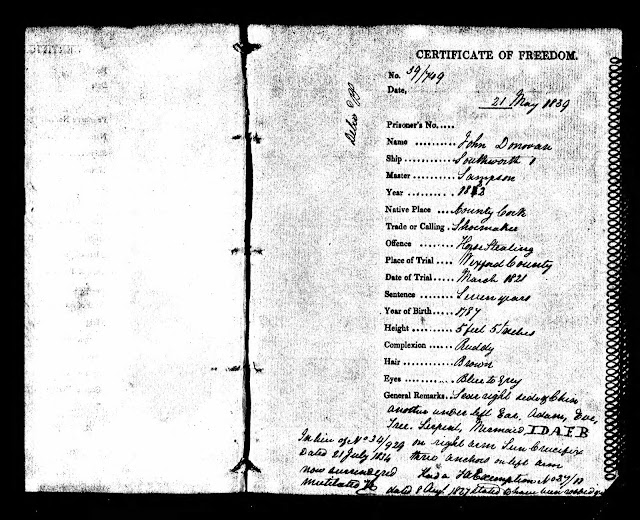 CERTIFICATE OF FREEDOM.
No. 39/709
Date,
21 May 1839
Prisoner's No.....
Name .......... John Donovan
Ship .......... Southworth 1
Master ......... Sampson
Year .......... 1822
Native Place .... County Cork
Trade or Calling . Shoemaker
Offence ........ Horse Stealing
Place of Trial .... Wexford County
Date of Trial..... March 1821
Sentence ........ Seven years
Year of Birth..... 1787
Height ......... 5 feet 5 inches
Complexion ...... Ruddy
Hair ........... Brown
Eyes ........... Blue to Grey
General Remarks.. Scar right side of Chin
another under left Ear, Adam, Eve,
Tree, Serpent, Mermaid IDAEB
on right arm Sun Crucifix
two anchors on left arm
Held a Exemption No 37/10
dated 8 Augt. 1837 stated to have been robbed of
In lieu of No 34/929
Dated 21 July 1834
now surrendered
mutilated